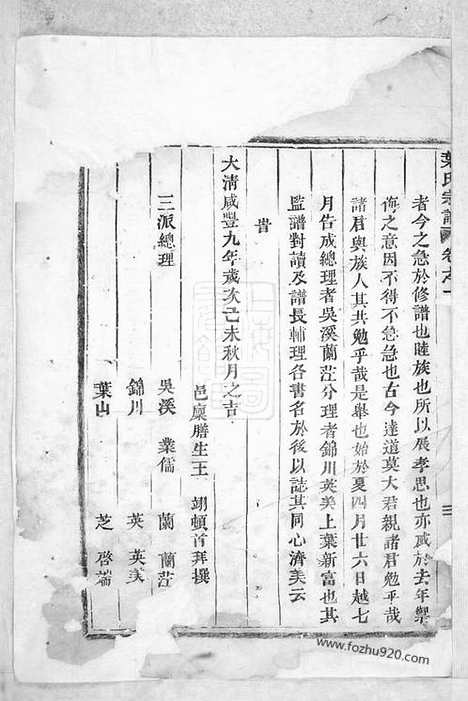 葉氏宗譜 卷之一
者今之急於修譜也睦族也所以展孝思也亦咸於去年舉
侮之意因不得不急急也古今達道莫大君親諸君勉乎哉
諸君與族人其共勉乎哉是舉也始於夏四月廿六日越七
月告成總理者吳溪蘭茳分理者錦川英美上葉新富也其
監譜對讀及譜長輔理各書名於後以誌其同心濟美云
旹
大清咸豐九年歲次己未秋月之吉
邑廩膳生王 翊頓首拜撰
三派總理
吳溪 業儒 蘭 蘭茳
錦川 英 英美
葉山 芝 啓端
www.fozhu920.com